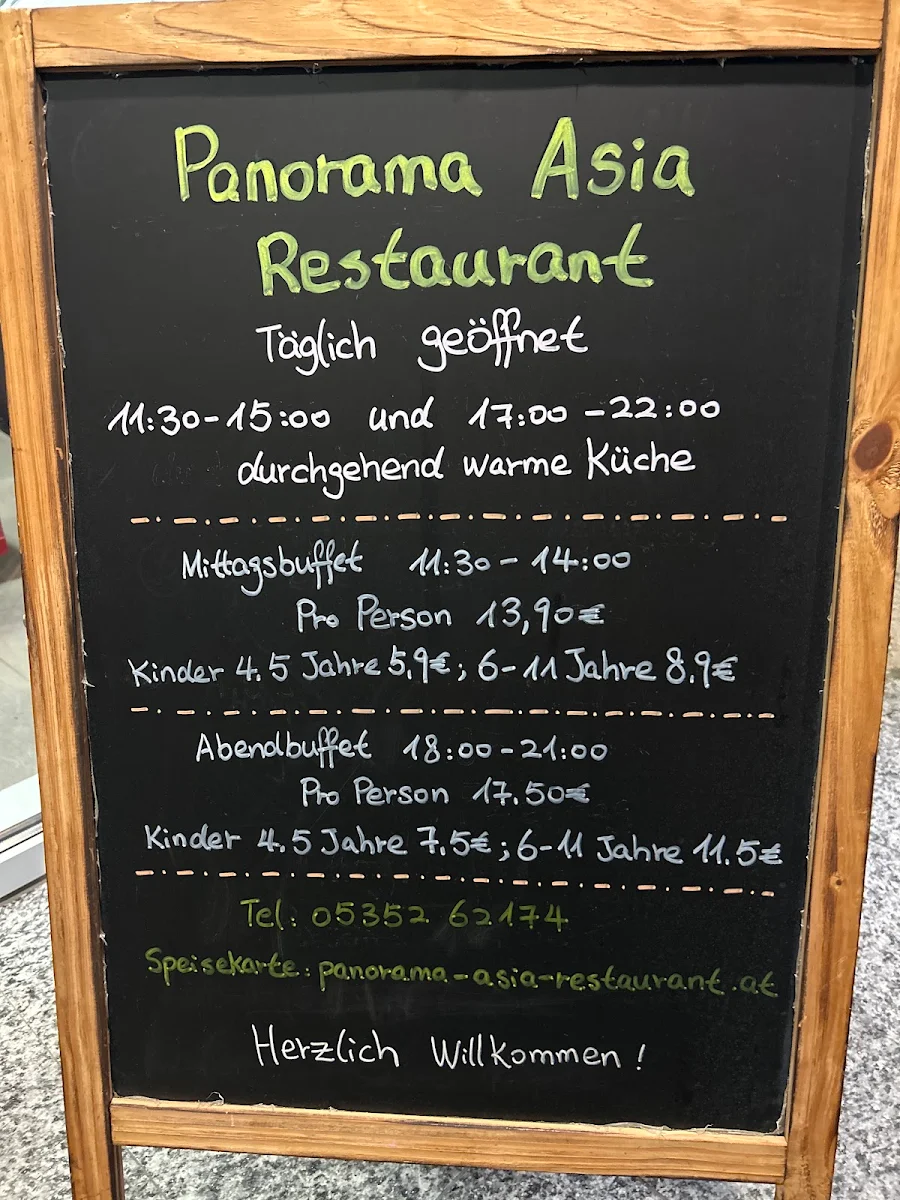 Panorama Asia
Restaurant
Täglich geöffnet
11:30-15:00 und 17:00-22:00
durchgehend warme Küche
Mittagsbuffet 11:30-14:00
Pro Person 13,90€
Kinder 4.5 Jahre 5.9€; 6-11 Jahre 8.9€
Abendbuffet 18:00-21:00
Pro Person 17.50€
Kinder 4.5 Jahre 7.5€; 6-11 Jahre 11.5€
Tel: 05352 62174
Speisekarte: panorama-asia-restaurant.at
Herzlich Willkommen!